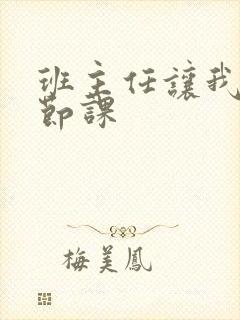 班主任讓我
節課
梅美鳳